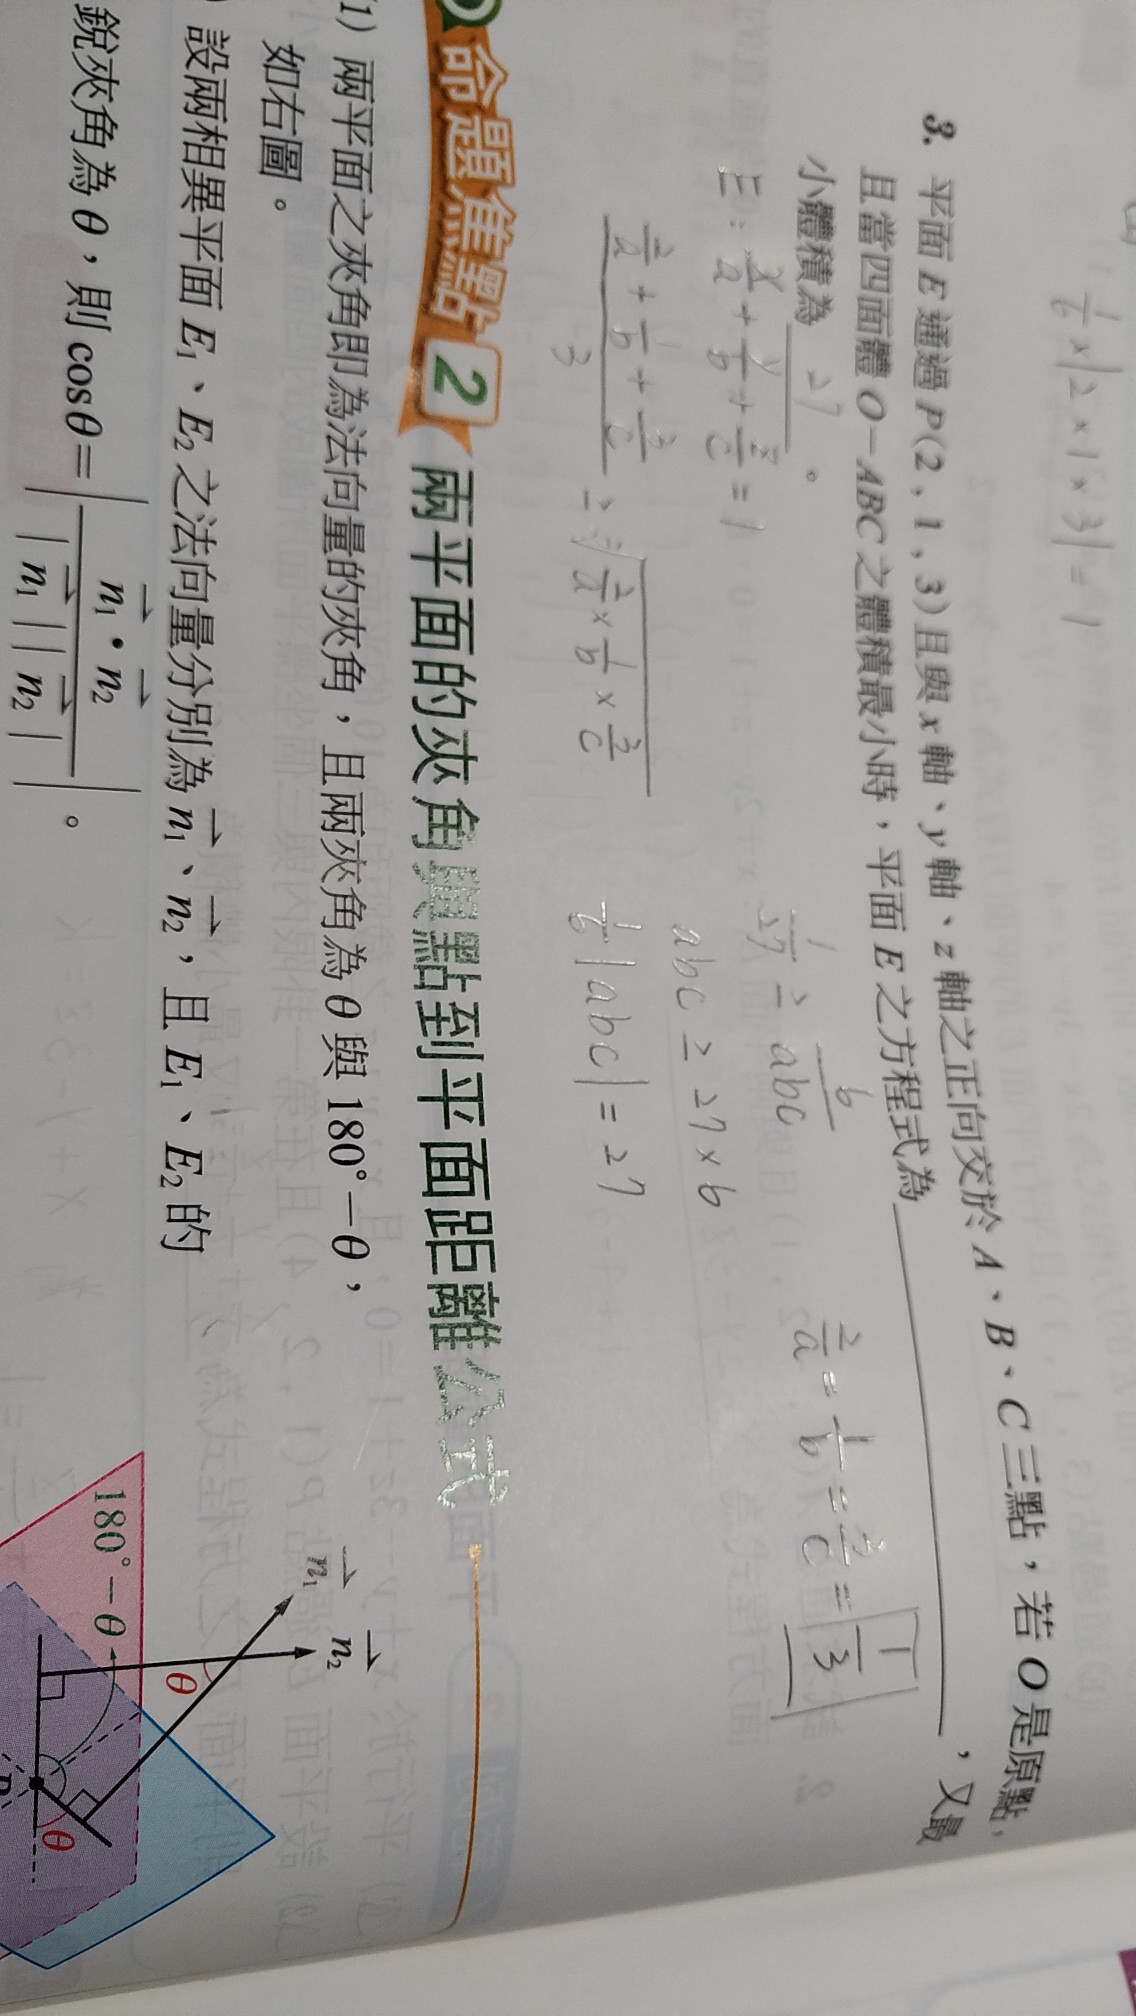 1/6 × |2 × 1 × 3| = 1
3. 平面 E 通過 P(2 , 1 , 3) 且與 x 軸、y 軸、z 軸之正向交於 A、B、C 三點，若 O 是原點，
且當四面體 O－ABC 之體積最小時，平面 E 之方程式為＿＿＿＿，又最
小體積為 27 。
E : x/a + y/b + z/c = 1
(2/a + 1/b + 3/c)/3 ≥ ³√(2/a × 1/b × 3/c)
1/27 ≥ 6/abc
abc ≥ 27 × 6
1/6 |abc| = 27
2/a = 1/b = 3/c = 1/3
命題焦點 2 兩平面的夾角與點到平面距離公式
1) 兩平面之夾角即為法向量的夾角，且兩夾角為 θ 與 180°－θ，
如右圖。
) 設兩相異平面 E₁、E₂ 之法向量分別為 n₁⃗、n₂⃗，且 E₁、E₂ 的
銳夾角為 θ，則 cosθ＝|n₁⃗ · n₂⃗ / |n₁⃗||n₂⃗||。
n₁⃗
n₂⃗
θ
180°－θ
θ